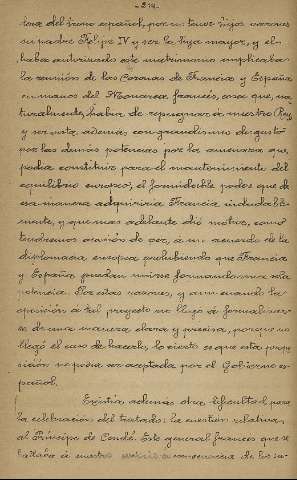 -214-
tona del trono español, por no tener hijos varones
su padre Felipe IV y ser la hija mayor, y el
haber autorizado este matrimonio implicaba
la reunión de las Coronas de Francia y España
en manos del Monarca francés, cosa que, na-
turalmente, había de repugnar a nuestro Rey
y ser vista, además, con grandísimo disgusto
por las demás potencias por la amenaza que
podía constituir para el mantenimiento del
equilibrio europeo, el formidable poder que de
esa manera adquiriría Francia indudable-
mente, y que mas adelante dió motivo, como
tendremos ocasión de ver, a un acuerdo de la
diplomacia europea prohibiendo que Francia
y España puedan unirse formando una sola
potencia. Por estas razones, y aun cuando la
oposición a tal proyecto no llegó a formalizar-
se de una manera clara y precisa, porque no
llegó el caso de hacerlo, lo cierto es que esta propo-
sición no podía ser aceptada por el Gobierno es-
pañol.
Existía además otra dificultad para
la celebración del tratado: la cuestión relativa
al Príncipe de Condé. Este general francés que se
hallaba a nuestro servicio a consecuencia de los su-